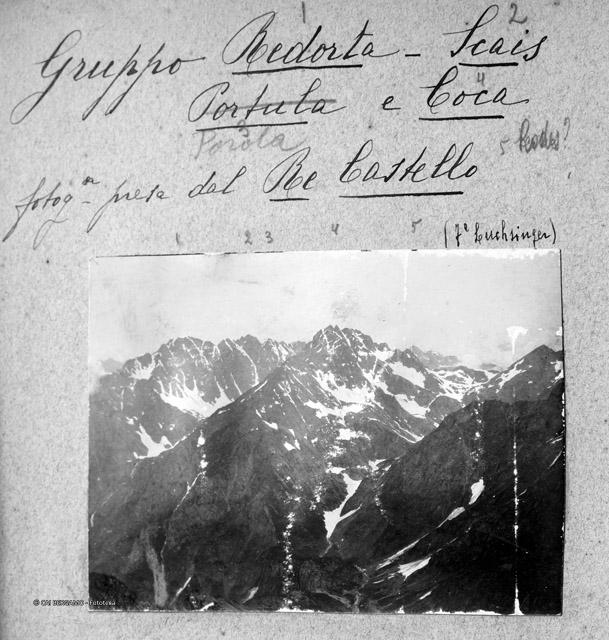 1 2
Gruppo Redorta - Scais
4
Portula e Coca
3
Porola 5 Rodes?
fotogª presa dal Re Castello
1 2 3 4 5 (fª Luchsinger)
© CAI BERGAMO - Fototeca